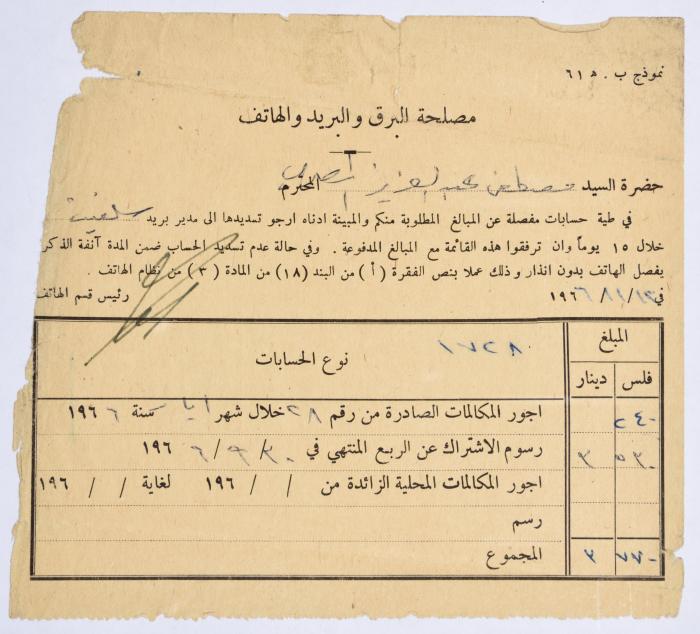 نموذج ب . ه ٦١
مصلحة البرق والبريد والهاتف
حضرة السيد مصطفى عبد العزيز المحترم
في طية حسابات مفصلة عن المبالغ المطلوبة منكم والمبينة ادناه ارجو تسديدها الى مدير بريد سلفيت
خلال ١٥ يوماً وان ترفقوا هذه القائمة مع المبالغ المدفوعة . وفي حالة عدم تسديد الحساب ضمن المدة آنفة الذكر
يفصل الهاتف بدون انذار وذلك عملا بنص الفقرة ( أ ) من البند (١٨) من المادة (٣) من نظام الهاتف .
في ١٩٦٦ رئيس قسم الهاتف
المبلغ
فلس دينار نوع الحسابات ١٧٢٨
٢٤٠ اجور المكالمات الصادرة من رقم ٢٨ خلال شهر سنة ١٩٦٦
٥٣٠ ٣ رسوم الاشتراك عن الربع المنتهي في ٣٠/٩/٦ ١٩٦
اجور المكالمات المحلية الزائدة من / / ١٩٦ لغاية / / ١٩٦
رسم
٧٧٠ ٣ المجموع